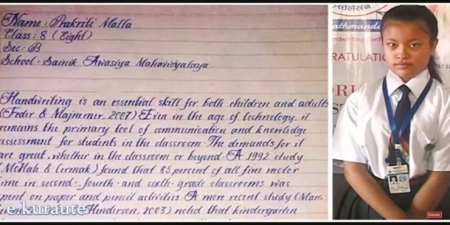 Name : Prakriti Malla
Class : 8 (Eight)
Sec : B
School : Sainik Awasiya Mahavidyalaya
Handwriting is an essential skill for both children and adults
(Feder & Majnemer, 2007) Even in the age of technology, it
remains the primary tool of communication and knowledge
assessment for students in the classroom The demands for it
are great, whether in the classroom or beyond A 1992 study
(McHale & Cermak) found that 85 percent of all fine motor
time in second- fourth-and sixth-grade classrooms was
spent on paper and pencil activities A more recent study (Marr
Henderson, 2003) noted that kindergarten
e/kuraute
athmandu